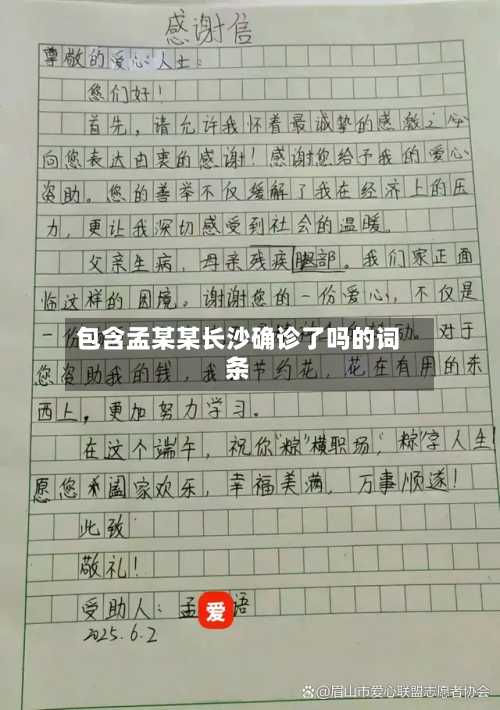 感谢信
尊敬的爱心人士：
您们好！
首先，请允许我怀着最诚挚的感激之心
向您表达由衷的感谢！感谢您给予我的爱心
资助。您的善举不仅缓解了我在经济上的压
力，更让我深切感受到社会的温暖。
父亲生病，母亲残疾腿部。我们家正面
临这样的困境。谢谢您的一份爱心，不仅是
一份
动。对于
包含孟某某长沙确诊了吗的词
条
您资助我的钱，我会节约花，花在有用的东
西上，更加努力学习。
在这个端午，祝你“粽”横职场，“粽”享人生！
愿您 国家欢乐，幸福美满，万事顺遂！
此致
敬礼！
受助人：孟 爱 语
2025.6.2
@眉山市爱心联盟志愿者协会